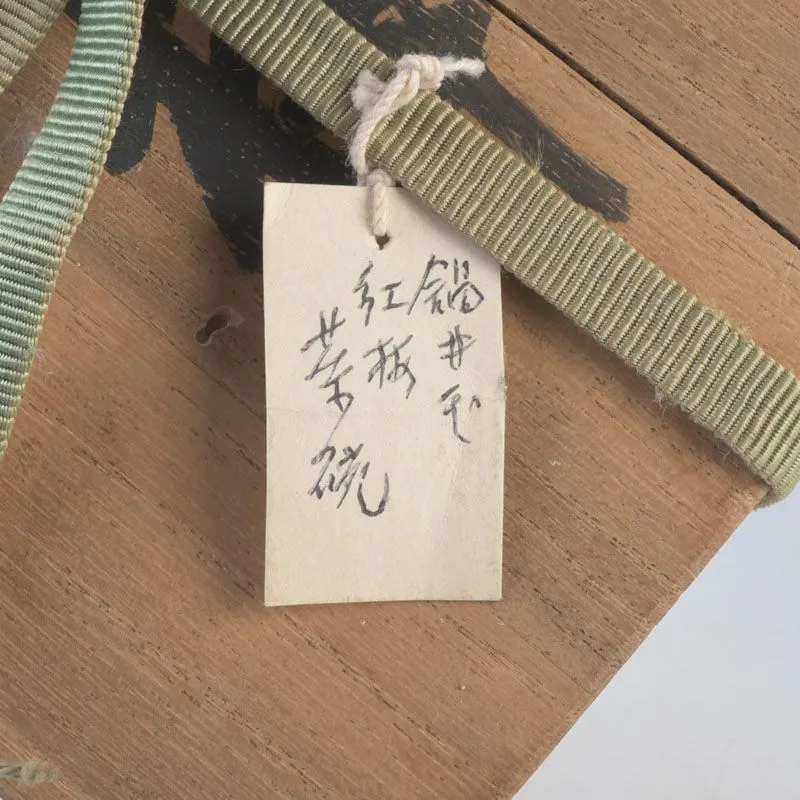 鍋井
紅梅
茶碗